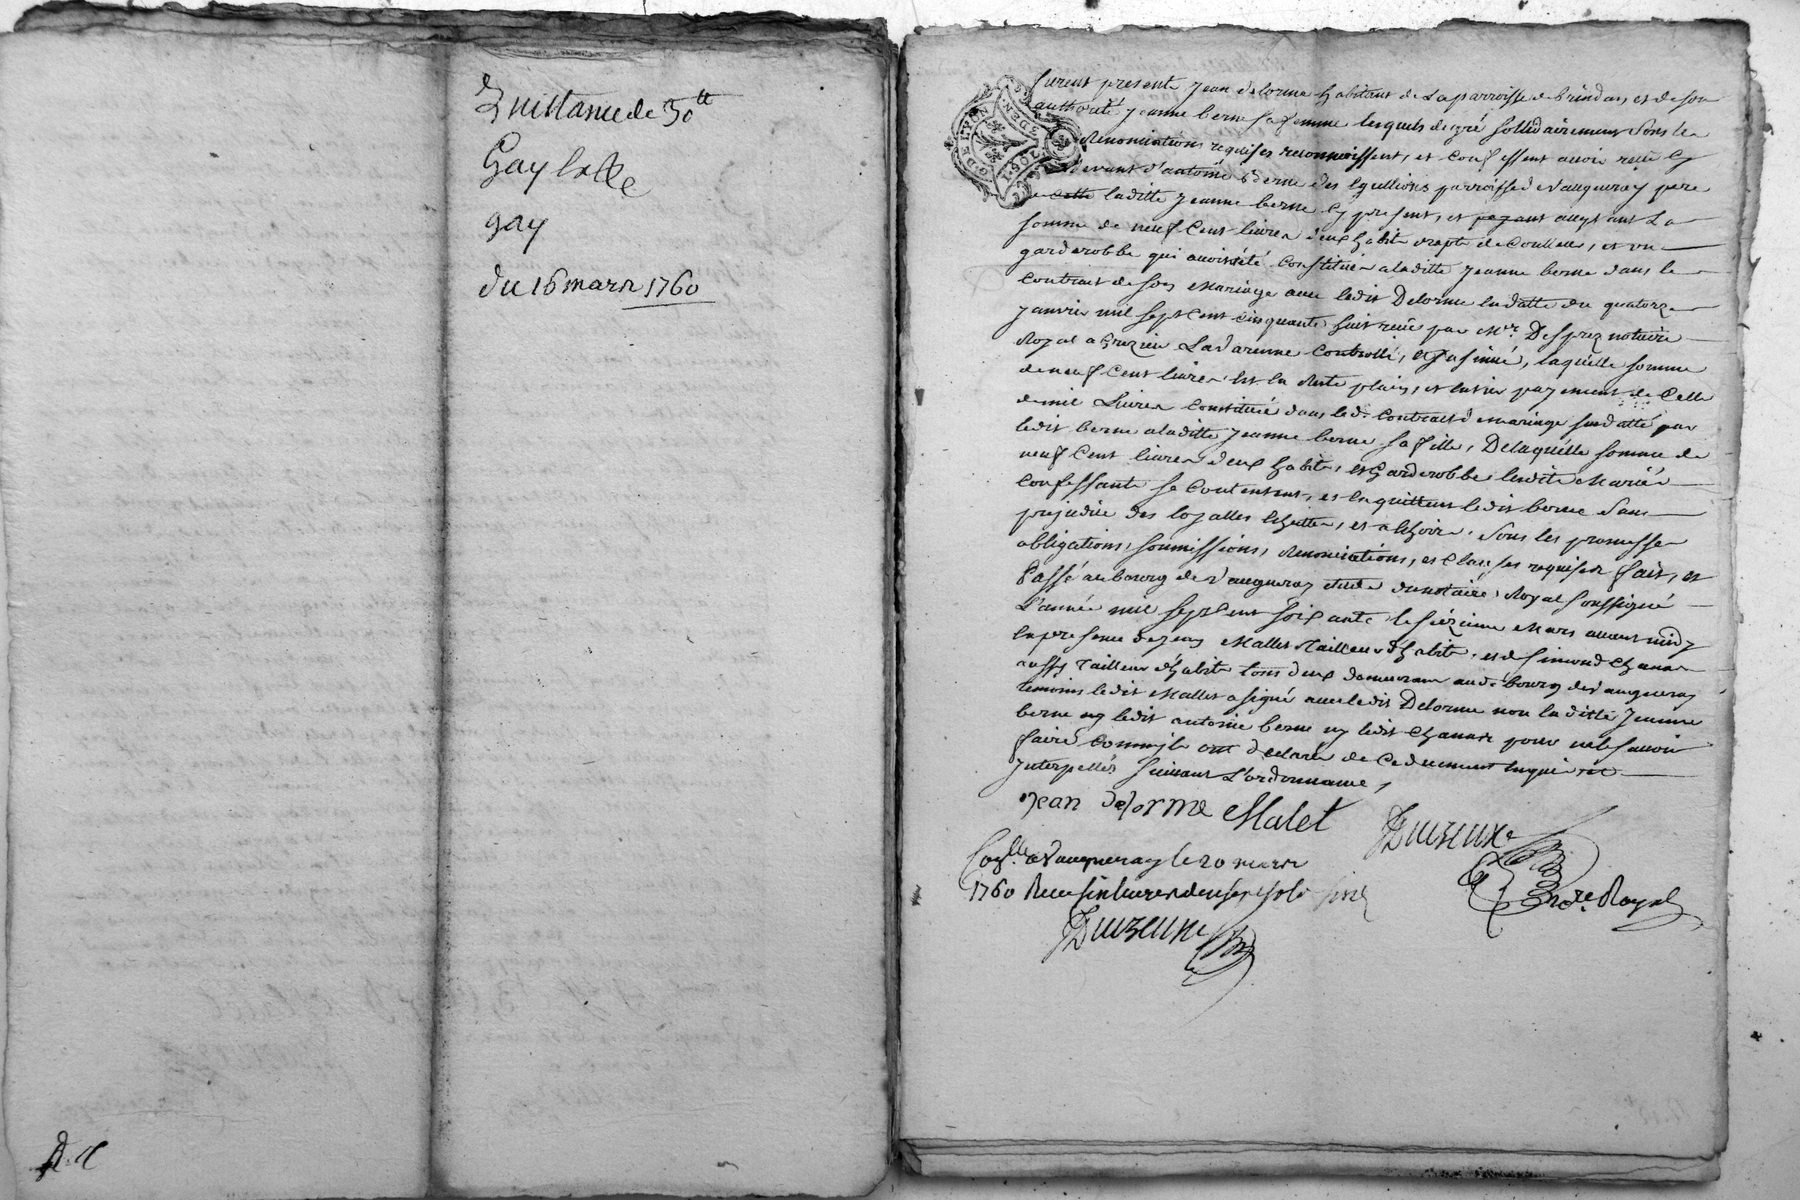 Quittance de 50ᵗᵗ
Gay
gay
du 16 mars 1760
furent presents Jean delorme habitant de la parroisse de brindas et de son
authorité Jeanne berne sa femme lesquels de gré sollidairement sous les
Renonciations requises reconnoissent, et confessent avoir reçû cy
devant d'antoine berne des Eguillions parroisse de Vaugneray pere
de laditte Jeanne berne cy present, et acceptant La
somme de neuf Cent livres deux habits et une
garderobbe qui avoit été Constituée a laditte Jeanne berne dans le
Contract de son Mariage avec ledit Delorme en datte du quatorze
Janvier mil sept Cent Cinquante huit reçû par Mᵉʳ Desprez notaire
Royal a Grezieu Lavarenne Controllé, et Insinué, laquelle somme
de neuf Cent livres est la Reste plain, et entier payement de Celle
de mil Livres Constituée dans led. Contract de Mariage susdatté par
ledit berne a laditte Jeanne berne sa fille, De laquelle somme de
neuf Cent livres deux habits, et Garderobbe lesdits Mariés
Confessants se Contentent, et en quittent ledit berne Sans
prejudice des loyalles Echuttes, et a Echoir. Sous les promesses
obligations, soumissions, Renonciations, et Clauses requises fait, et
Passé au bourg de Vaugneray etude du notaire Royal soussigné
L'année mil sept Cent soixante le seizieme Mars avant midy
En presence de Jean Mallet Tailleur d'habits, et de Simond Chanas
aussy Tailleur d'habits tous deux demeurant audᵗ bourg de Vaugneray
temoins ledit Mallet a signé avec ledit Delorme non laditte Jeanne
berne ny ledit antoine berne ny ledit Chanas pour ne le sçavoir
faire Comm'ils ont declaré de Ce duement Enquis et
Interpellés suivant L'ordonnance,
Jean delorme Malet
Conˡˡᵉ a Vaugneray le 20 mars
1760 Reçu six livres douse sols
noʳᵉ Royal